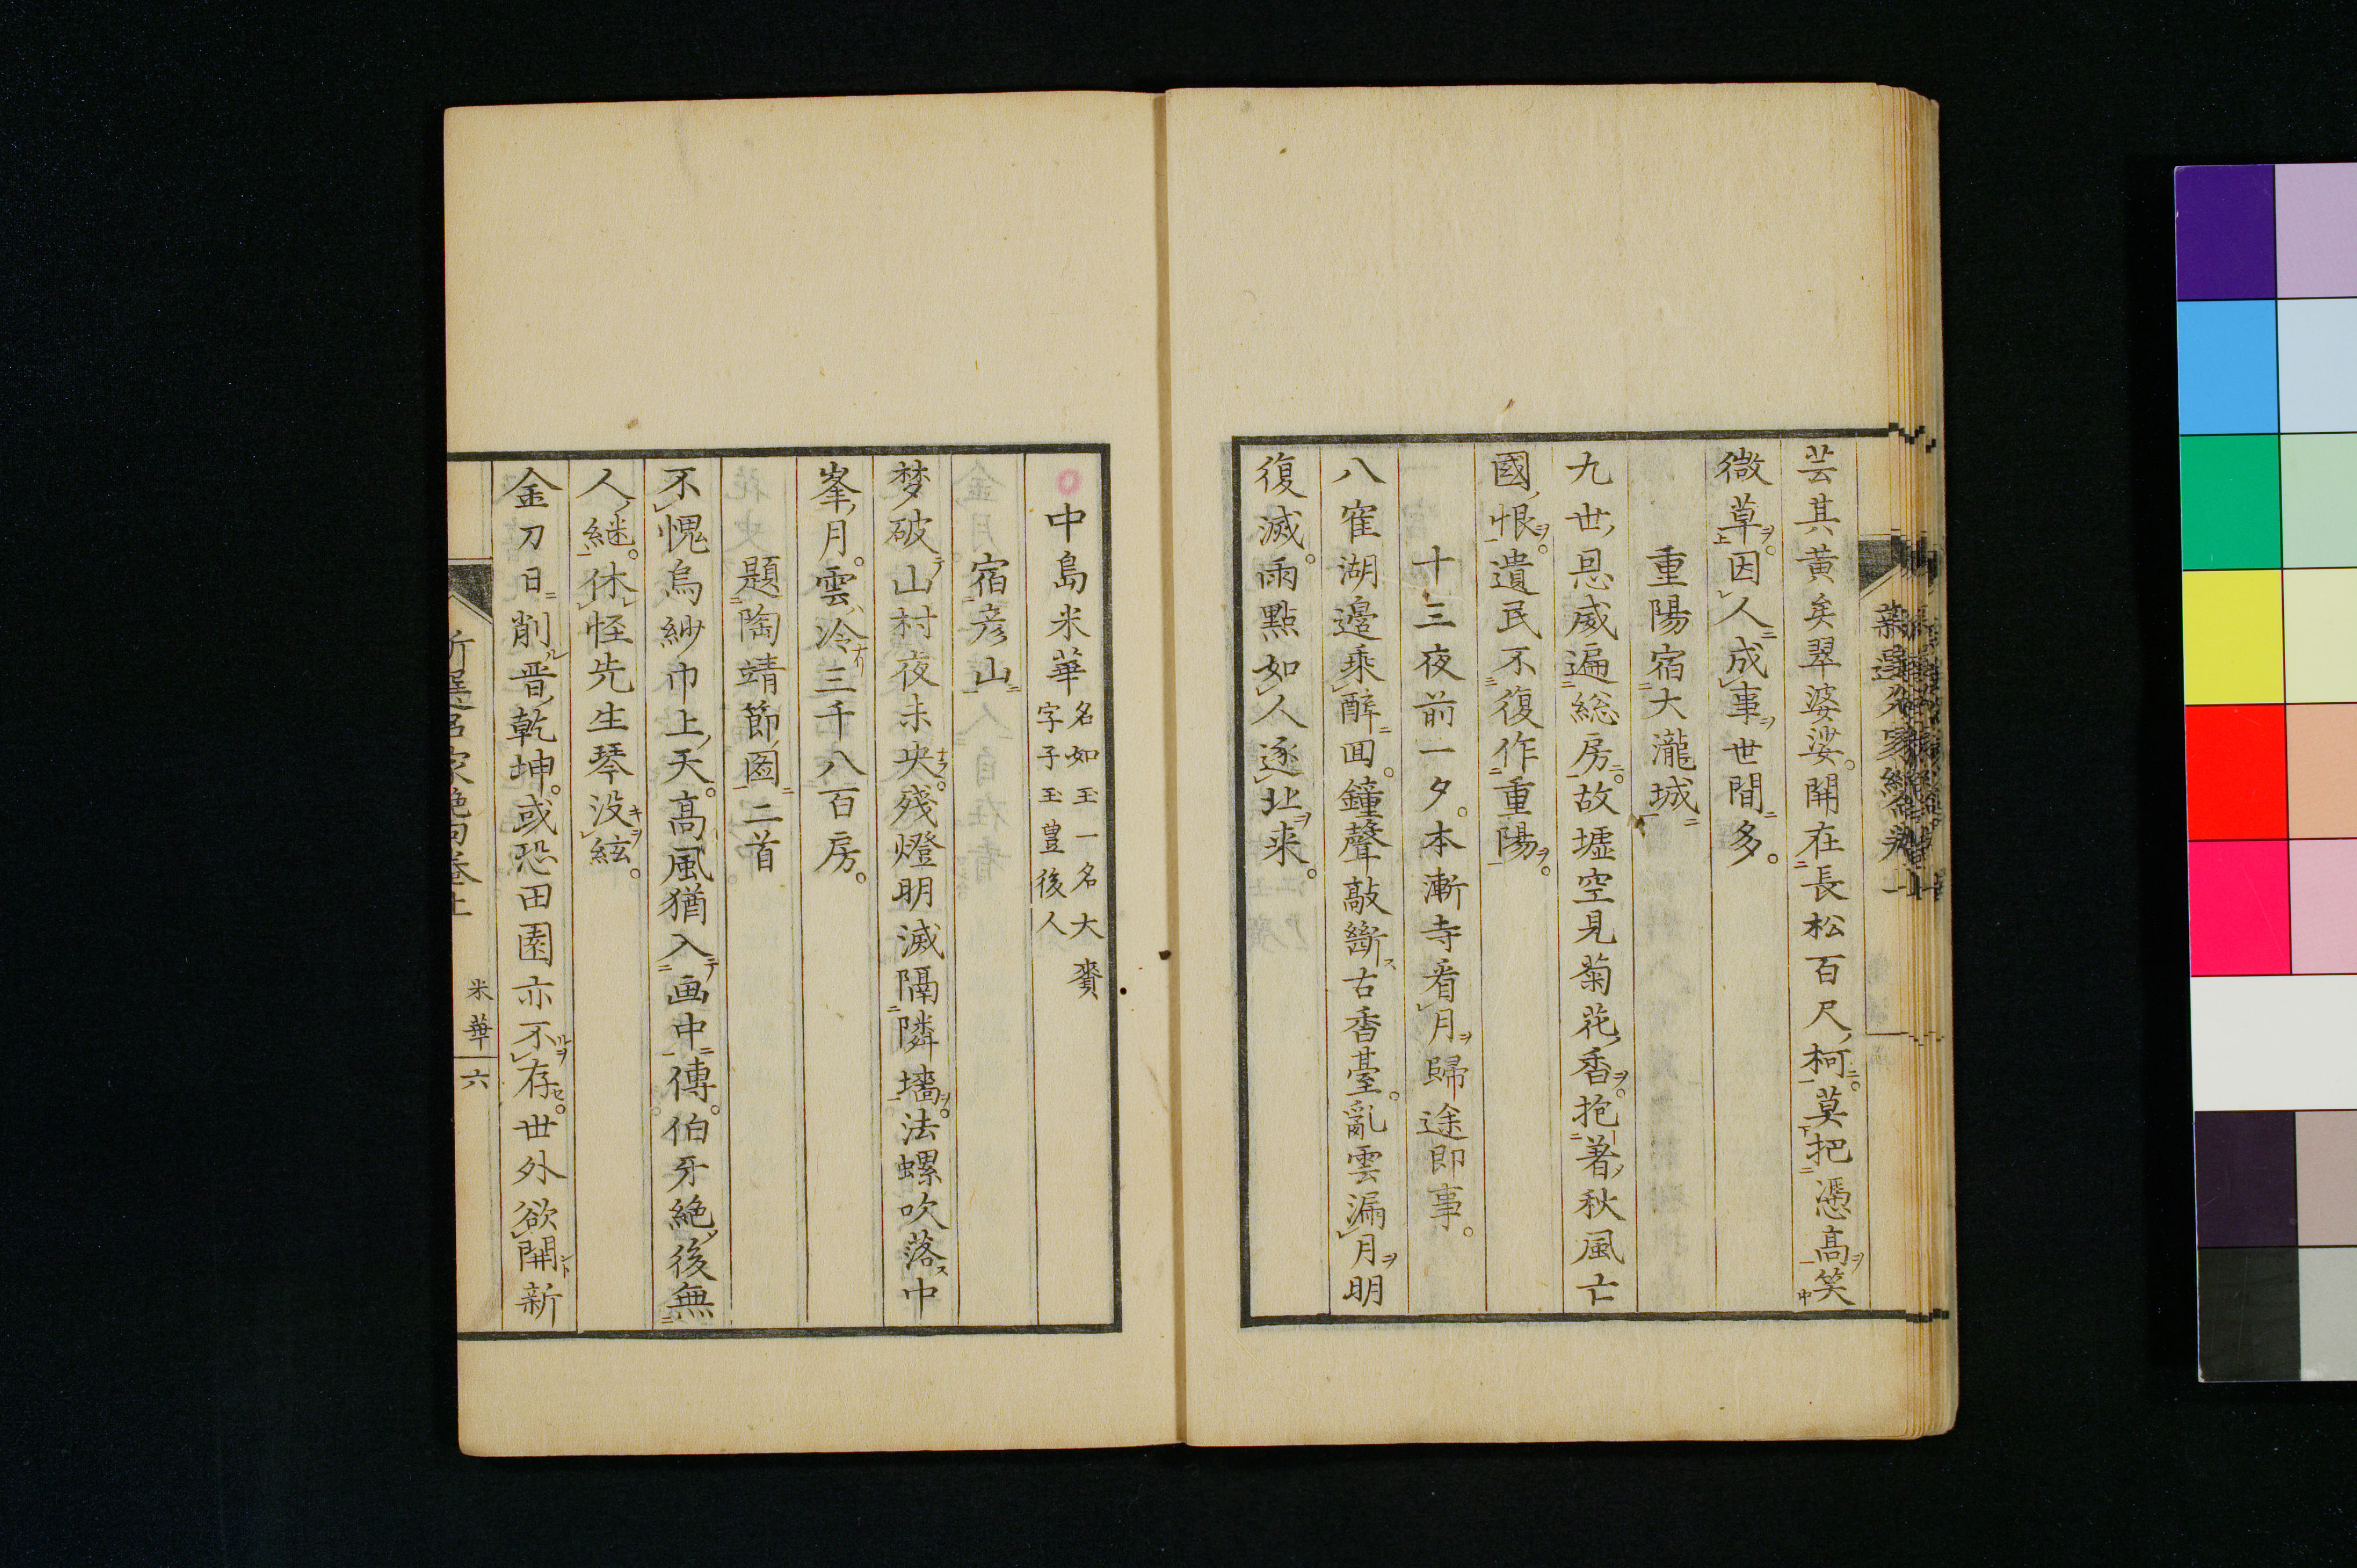 芸其黄矣翠婆娑。開在長松百尺柯。莫把憑高笑
微草。因人成事世間多。
重陽宿大瀧城
九世恩威遍総房。故墟空見菊花香。抱著秋風亡
國恨。遺民不復作重陽。
十三夜前一夕。本漸寺看月歸途即事。
八窪湖邉乘醉囬。鐘聲敲斷古香臺。亂雲漏月明
復滅。雨點如人逐北来。
○中島米華
名如玉一名大賚
字子玉豊後人
宿彦山
梦破山村夜未央。殘燈明滅隔隣墻。法螺吹落中
峯月。雲冷三千八百房。
題陶靖節図二首
不愧烏紗巾上天。高風猶入画中傳。伯牙絶後無
人継。休怪先生琴没絃。
金刀日削晋乾坤。或恐田園亦不存。世外欲開新
米華 六